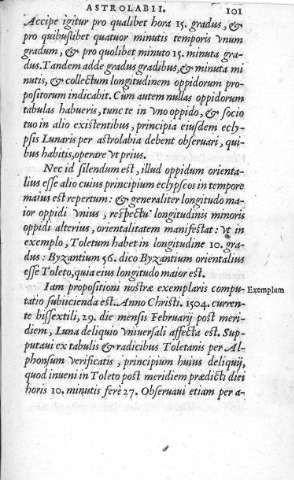 ASTROLABII. 101
Accipe igitur pro qualibet hora 15. gradus, &
pro quibuslibet quatuor minutis temporis vnum
gradum, & pro quolibet minuto 15. minuta gra-
dus. Tandem adde gradus gradibus, & minuta mi
nutis, & collectum longitudinem oppidorum pro-
positorum indicabit. Cum autem nullas oppidorum
tabulas habueris, tunc te in vno oppido, & socio
tuo in alio existentibus, principia eiusdem ecly-
psis Lunaris per astrolabia debent obseruari, qui-
bus habitis, operare vt prius.
Nec id silendum est, illud oppidum orienta-
lius esse alio cuius principium eclypseos in tempore
maius est repertum: & generaliter longitudo ma-
ior oppidi vnius, respectu longitudinis minoris
oppidi alterius, orientalitatem manifestat: vt in
exemplo, Toletum habet in longitudine 10. gra-
dus: Byzantium 56. dico Byzantium orientalius
esse Toleto, quia eius longitudo maior est.
Iam propositioni nostræ exemplaris compu- Exemplum
tatio subiicienda est. Anno Christi. 1504. curren-
te bissextili, 29. die mensis Februarij post meri-
diem, Luna deliquio vniuersali affecta est. Sup-
putaui ex tabulis & radicibus Toletanis per Al-
phonsum verificatis, principium huius deliquij,
quod inueni in Toleto post meridiem prædicti diei
horis 10. minutis ferè 27. Obseruaui etiam per a-